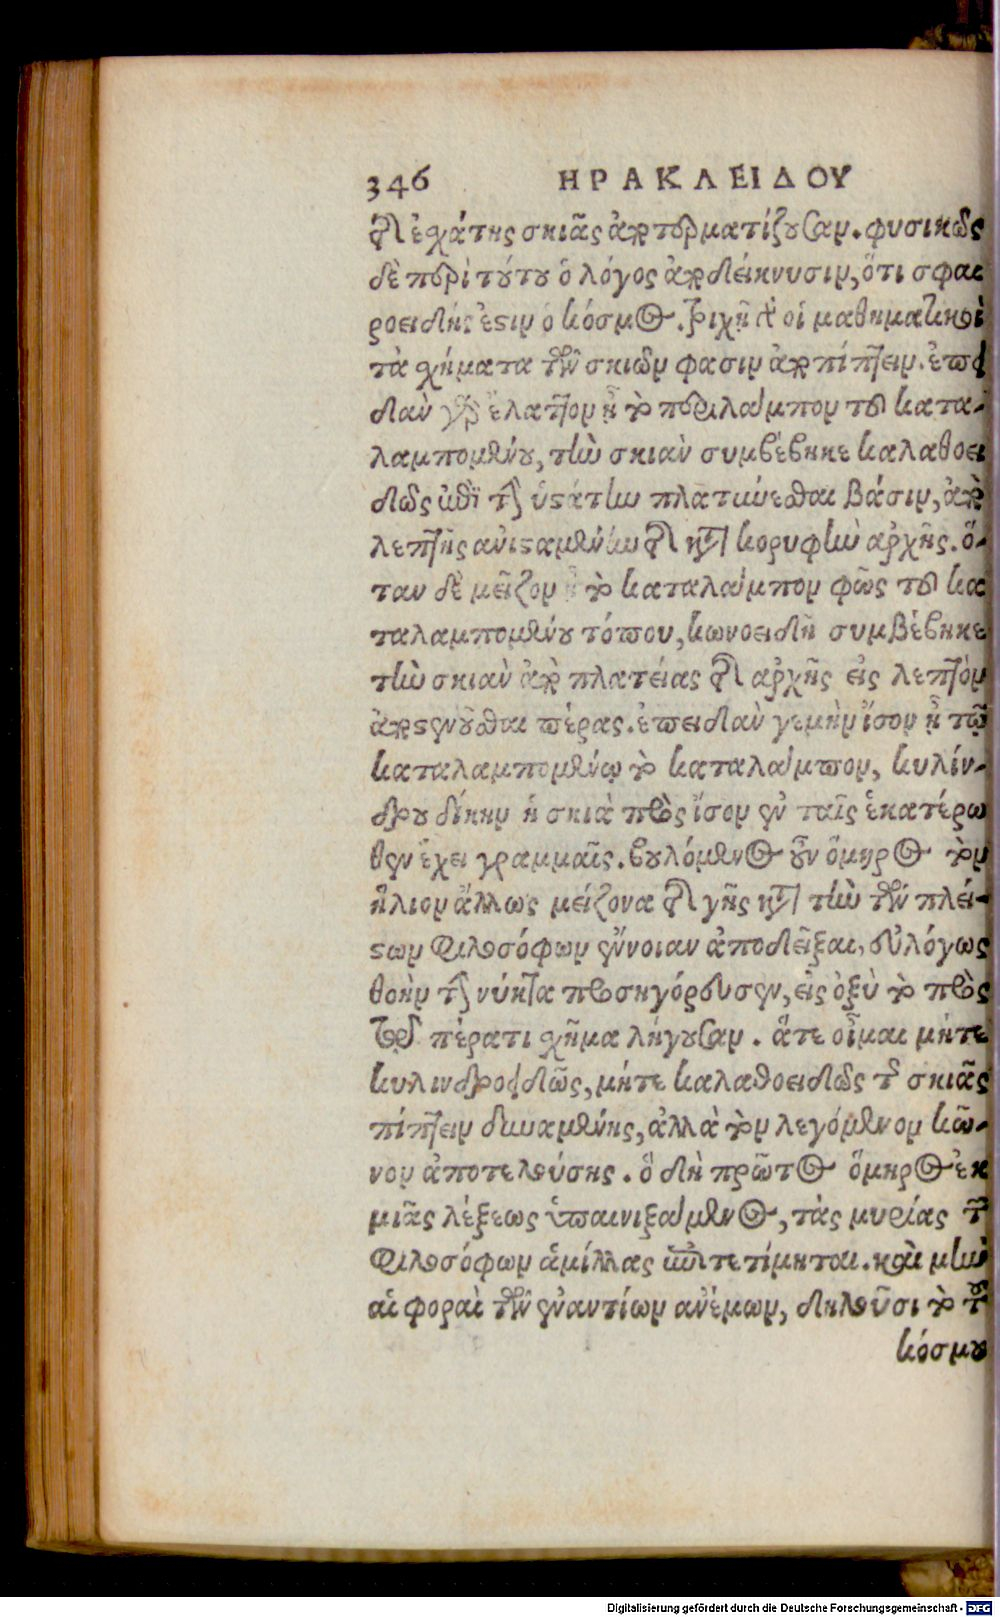 346 ΗΡΑΚΛΕΙΔΟΥ
τῆς ἐσχάτης σκιᾶς ἀποτερματίζουσαν. φυσικῶς
δὲ περὶ τούτου ὁ λόγος ἀποδείκνυσιν, ὅτι σφαι
ροειδής ἐστιν ὁ κόσμος. τριχῆ δὲ οἱ μαθηματικοὶ
τὰ σχήματα τῶν σκιῶν φασιν ἀποπίπτειν. ἐπει
δὰν γὰρ ἔλαττον ᾖ τὸ περιλάμπον τοῦ κατα-
λαμπομένου, τὴν σκιὰν συμβέβηκε καλαθοει
δῶς ἐπὶ τὴν ὑστάτην πλατύνεσθαι βάσιν, ἀπὸ
λεπτῆς ἀνισταμένην τῆς κατὰ κορυφὴν ἀρχῆς. ὅ-
ταν δὲ μεῖζον ᾖ τὸ καταλάμπον φῶς τοῦ κα
ταλαμπομένου τόπου, κωνοειδῆ συμβέβηκε
τὴν σκιὰν ἀπὸ πλατείας τῆς ἀρχῆς εἰς λεπτὸν
ἀποστενοῦσθαι πέρας. ἐπειδὰν γεμὴν ἴσον ᾖ τῷ
καταλαμπομένῳ τὸ καταλάμπον, κυλίν-
δρου δίκην ἡ σκιὰ πρὸς ἴσον ἐν ταῖς ἑκατέρω
θεν ἔχει γραμμαῖς. βουλόμενος οὖν ὅμηρος τὸν
ἥλιον ἄλλως μείζονα τῆς γῆς κατὰ τὴν τῶν πλεί-
στων φιλοσόφων ἔννοιαν ἀποδεῖξαι, εὐλόγως
θοὴν τὴν νύκτα προσηγόρευσεν, εἰς ὀξὺ τὸ πρὸς
τῷ πέρατι σχῆμα λήγουσαν. ἅτε οἶμαι μήτε
κυλινδροειδῶς, μήτε καλαθοειδῶς τῆς σκιᾶς
πίπτειν δυναμένης, ἀλλὰ τὸν λεγόμενον κῶ-
νον ἀποτελούσης. ὃ δὴ πρῶτος ὅμηρος ἐκ
μιᾶς λέξεως ὑπαινιξάμενος, τὰς μυρίας τῶν
φιλοσόφων ἁμίλλας ὑποτετίμηται. καὶ μὴν
αἱ φοραὶ τῶν ἐναντίων ἀνέμων, δηλοῦσι τὸ τοῦ
κόσμου
Digitalisierung gefördert durch die Deutsche Forschungsgemeinschaft - DFG